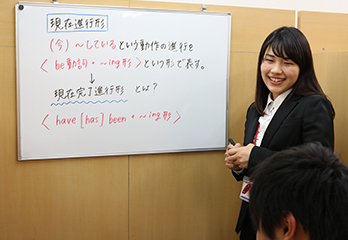 現在進行形
(今) 〜しているという動作の進行を
〈 be動詞 + 〜ing形 〉という形で表す。
↓
現在完了進行形 とは？
〈 have [has] been + 〜ing形 〉